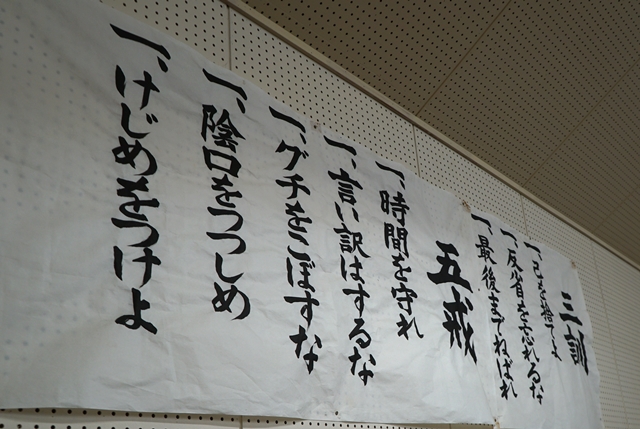 三訓
一、己を捨てよ
一、反省を忘れるな
一、最後までねばれ
五戒
一、時間を守れ
一、言い訳はするな
一、グチをこぼすな
一、陰口をつつしめ
一、けじめをつけよ